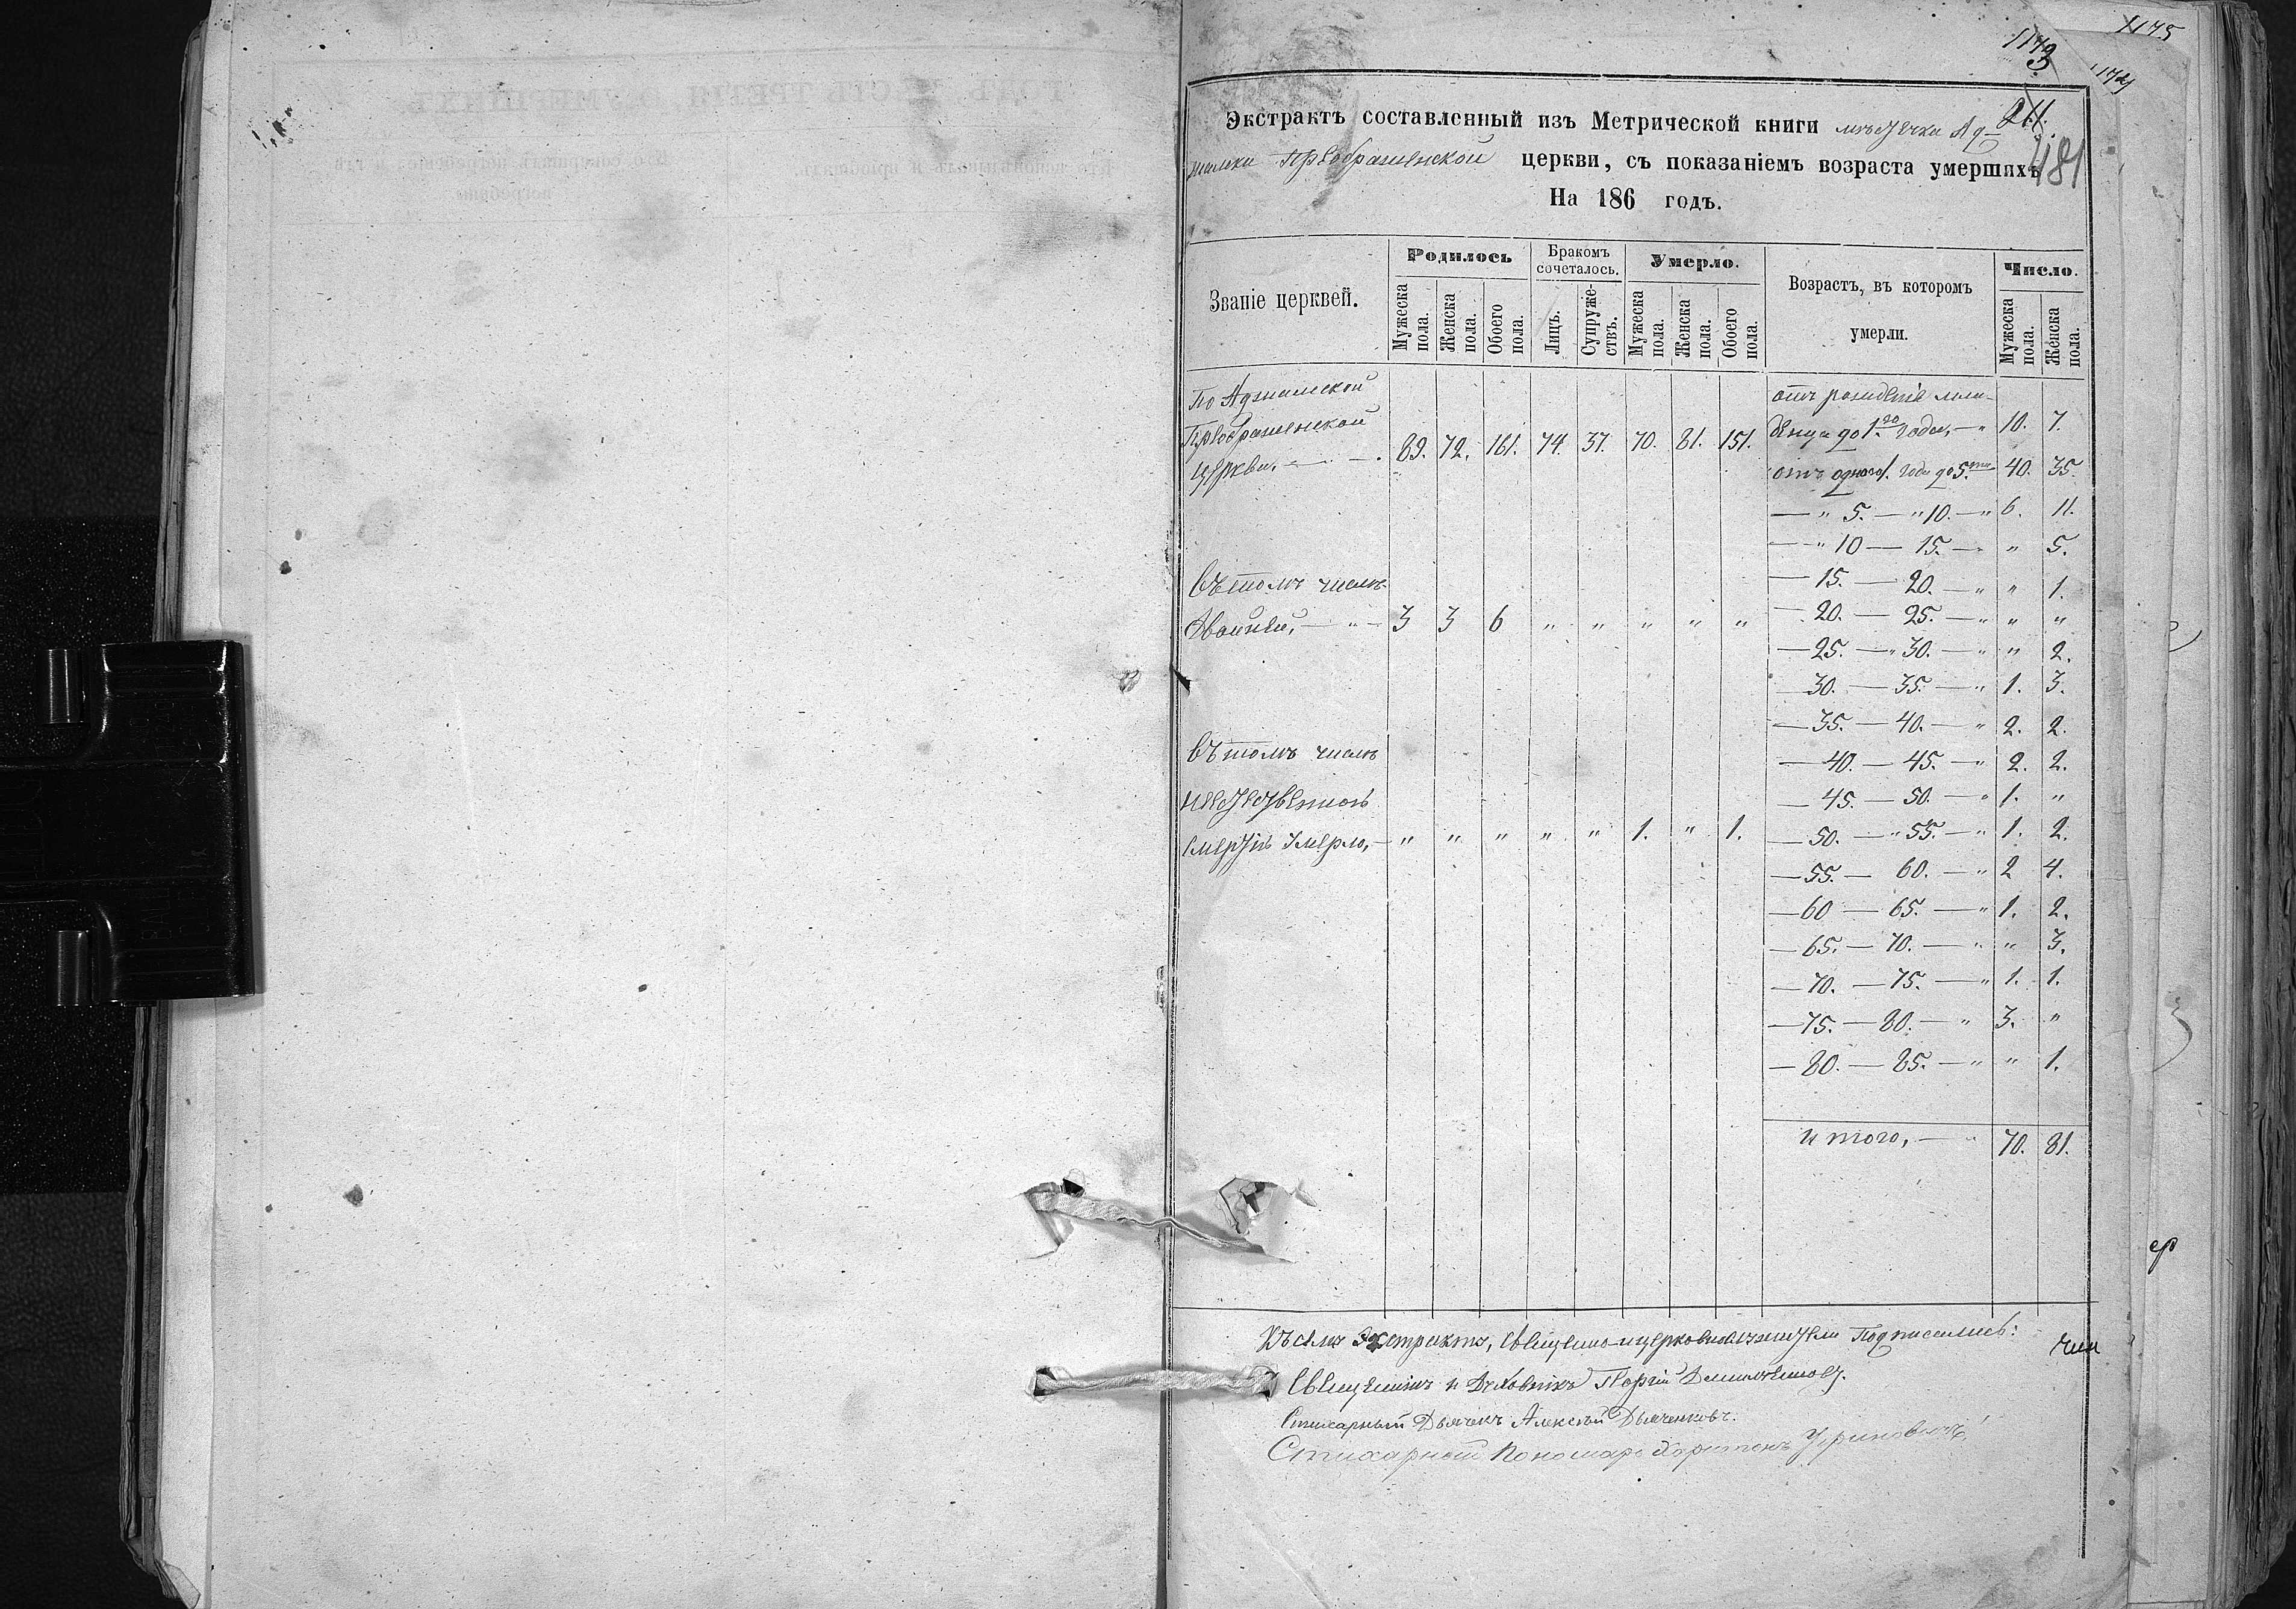 1175
1173
1174
211.
481
Экстрактъ составленный изъ Метрической книги мѣстечка Ад-
жамки Преображенской церкви, съ показаніемъ возраста умершихъ
На 186 годъ.
Званіе церквей. Родилось Бракомъ сочеталось. Умерло. Возрастъ, въ которомъ умерли. Число.
Мужеска пола. Женска пола. Обоего пола. Лицъ. Супруже-ствъ. Мужеска пола. Женска пола. Обоего пола. Мужеска пола. Женска пола.
По Аджамской
Преображенской
Церкви, — — 89. 72. 161. 74. 37. 70. 81. 151.
отъ рожденія мла-
денца до 1.го года, — " 10. 7.
отъ одного 1. года до 5.ти 40. 35.
— " 5. — " 10. — " 6. 11.
— " 10 — 15. — " " 5.
— 15. — 20. — " " 1.
— 20. — 25. — " " "
— 25. — " 30. — " " 2.
— 30. — 35. — " 1. 3.
— 35. — 40. — " 2. 2.
— 40. — 45. — " 2. 2.
— 45. — 50. — " 1. "
— 50. — " 55. — " 1. 2.
— 55. — 60. — " 2 4.
— 60 — 65. — " 1. 2.
— 65. — 70. — " " 3.
— 70. — 75. — " 1. 1.
— 75. — 80. — " 3. "
— 80. — 85. — " " 1.
итого, — " 70. 81.
Въ томъ числѣ
Двойней, — " — 3 3 6 " " " " "
Въ томъ числѣ
неестественною
смертію умерло, — " " " " " 1. " 1.
Къ сему Экстракту, Священно-церковнослужители Подписались:
Священникъ и Духовникъ Георгій
Стихарный Дьячекъ Алексѣй Дьяченковъ.
Стихарный Пономарь Харитонъ
ер